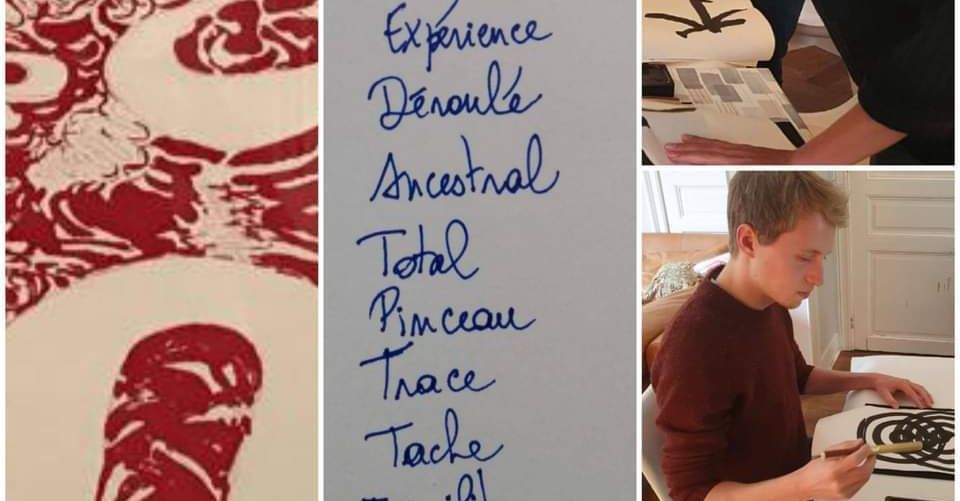 Expérience
Déroulé
Ancestral
Total
Pinceau
Trace
Tache